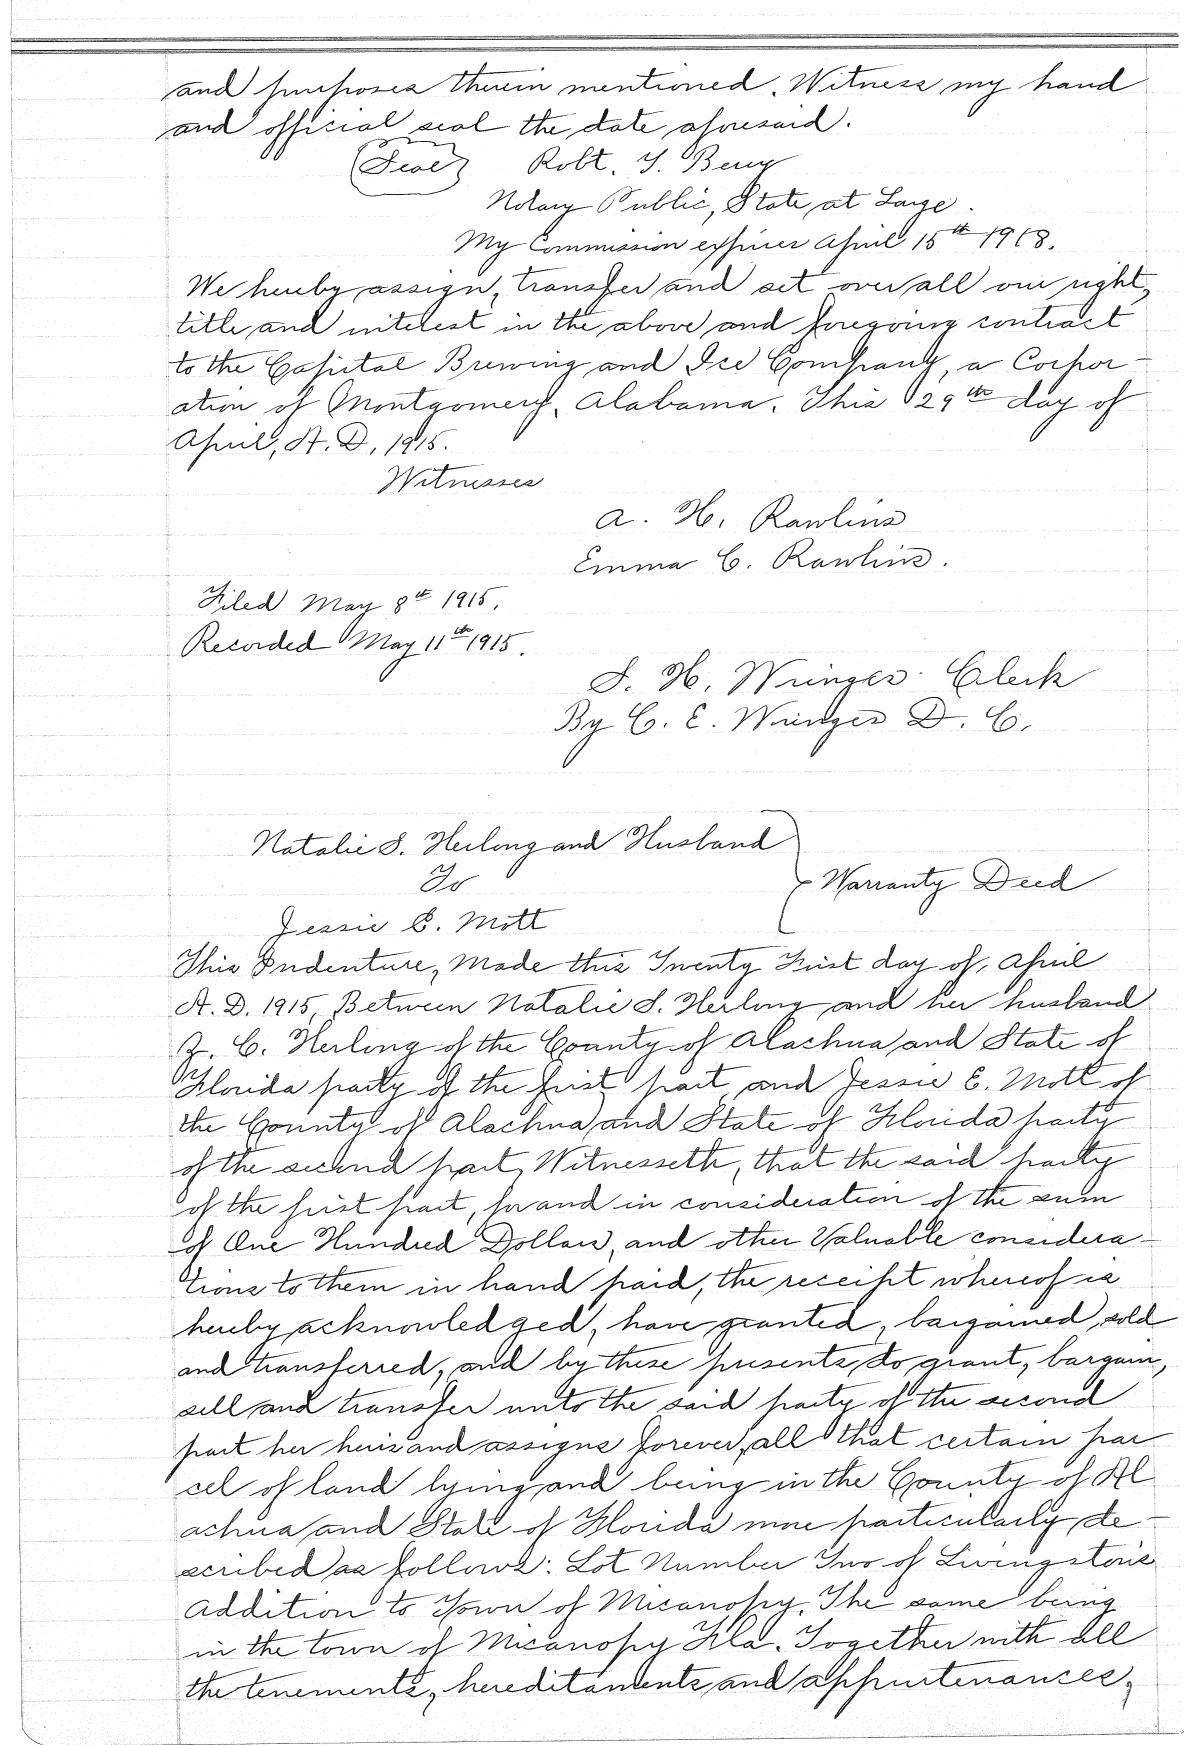 and purposes therein mentioned. Witness my hand
and official seal the date aforesaid.
(Seal) Robt. T. Berry
Notary Public, State at Large.
My Commission expires April 15th 1918.
We hereby assign, transfer and set over all our right,
title and interest in the above and foregoing contract
to the Capital Brewing and Ice Company, a Corpor-
ation of Montgomery, Alabama. This 29th day of
April, A. D. 1915.
Witnesses
A. H. Rawlins
Emma C. Rawlins.
Filed May 8th 1915.
Recorded May 11th 1915.
S. H. Wienges Clerk
By C. E. Wienges D. C.
Natalie S. Herlong and Husband
To
Warranty Deed
Jessie E. Mott
This Indenture, Made this Twenty First day of, April
A. D. 1915, Between Natalie S. Herlong and her husband
Z. C. Herlong of the County of Alachua and State of
Florida party of the first part, and Jessie E. Mott of
the County of Alachua and State of Florida party
of the second part, Witnesseth, that the said party
of the first part, for and in consideration of the sum
of One Hundred Dollars, and other Valuable considera-
tions to them in hand paid, the receipt whereof is
hereby acknowledged, have granted, bargained, sold
and transferred, and by these presents do grant, bargain,
sell and transfer unto the said party of the second
part her heirs and assigns forever, all that certain par
cel of land lying and being in the County of Al
achua and State of Florida more particularly de-
scribed as follows: Lot Number Two of Livingston's
Addition to Town of Micanopy. The same being
in the town of Micanopy Fla. Together with all
the tenements, hereditaments and appurtenances,